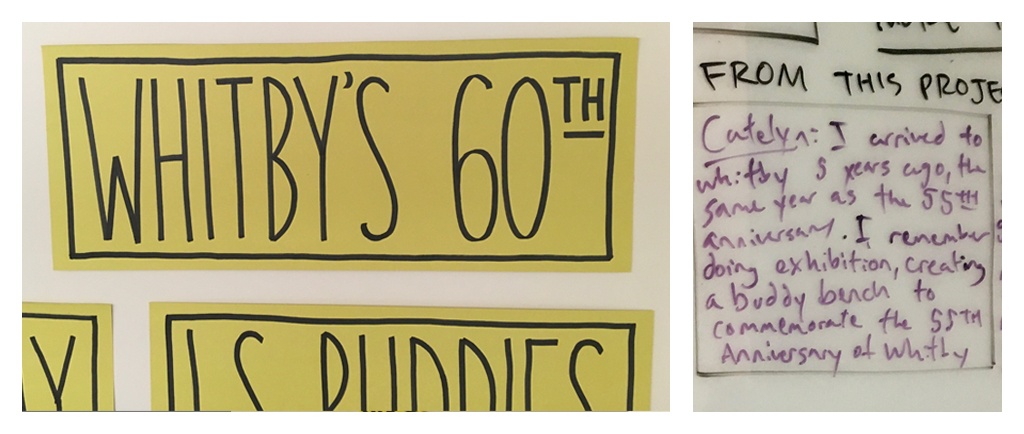 WHITBY'S 60TH
Y
LS BUDDIES
FROM THIS PROJE
Catelyn: I arrived to
whitby 5 years ago, the
same year as the 55TH
anniversary. I remember
doing exhibition, creating
a buddy bench to
commemorate the 55TH
Anniversary of Whitby